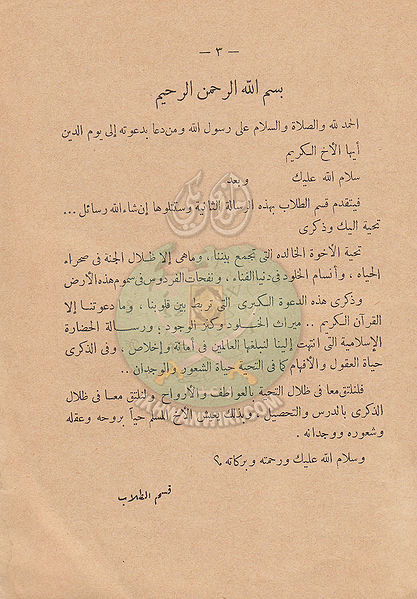 — ٣ —
بسم الله الرحمن الرحيم
الحمد لله والصلاة والسلام على رسول الله ومن دعا بدعوته إلى يوم الدين
أيها الأخ الكريم
سلام الله عليك وبعد
فيتقدم قسم الطلاب بهذه الرسالة الثانية وستتلوها إن شاء الله رسائل ...
تحية إليك وذكرى
تحية الأخوة الخالده التى تجمع بيننا ، وماهى إلا ظلال الجنة فى صحراء
الحياه ، وأنسام الخلود فى دنيا الفناء ، ونفحات الفردوس فى سموم هذه الأرض
وذكرى هذه الدعوة الكبرى التى تربط بين قلوبنا ، وما دعوتنا إلا
القرآن الكريم .. ميراث الخلود وكنز الوجود ؛ ورسالة الحضارة
الإسلامية التى انتهت إلينا لنبلغها العالمين فى أمانة وإخلاص . وفى الذكرى
حياة العقول والأفهام كما فى التحية حياة الشعور والوجدان ..
فلنلتق معا فى ظلال التحية بالعواطف والأرواح ولنلتق معا فى ظلال
الذكرى بالدرس والتحصيل ، وبذلك يعيش الأخ المسلم حياً بروحه وعقله
وشعوره ووجدانه .
وسلام الله عليك ورحمته وبركاته ؟
قسم الطلاب
IKHWANWIKI.COM